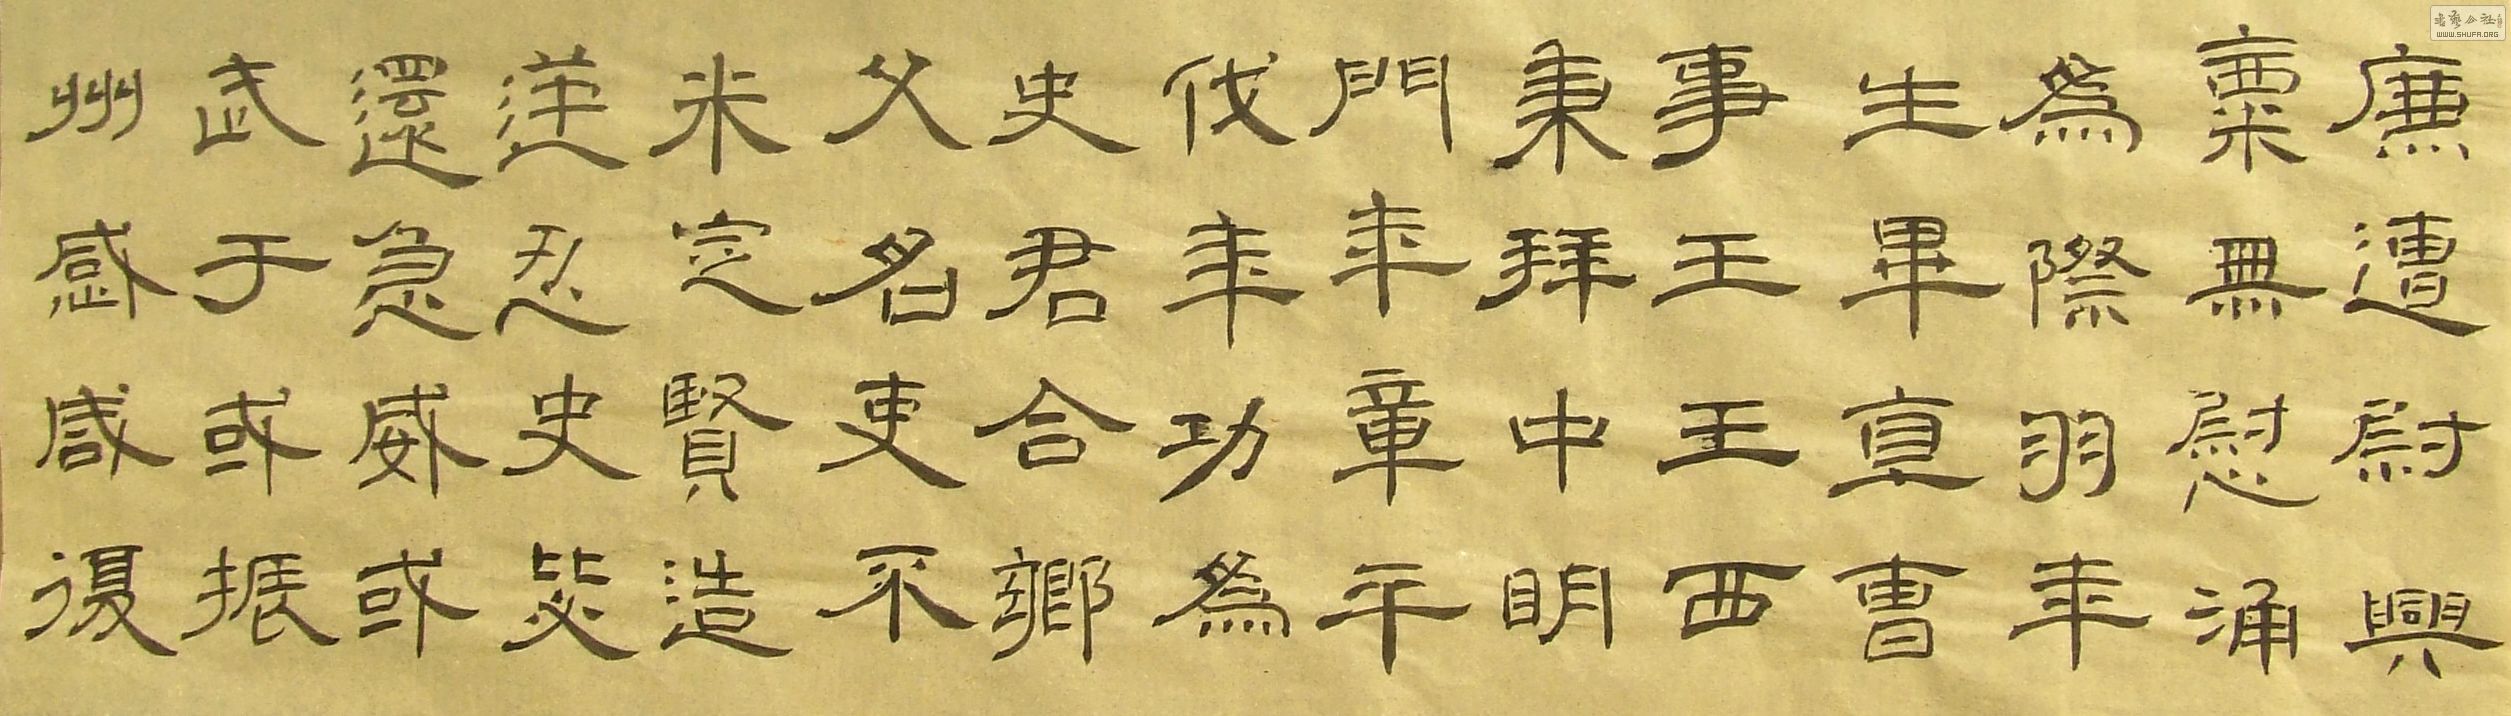 廉遭尉興
粟無慰涌
為際羽年
生畢直曹
事王王西
秉拜中明
門年章平
伐年功為
史君合鄉
父名吏不
米定賢造
逆忍史癹
還急威或
武于或振
州感咸復
書藝公社
WWW.SHUFA.ORG